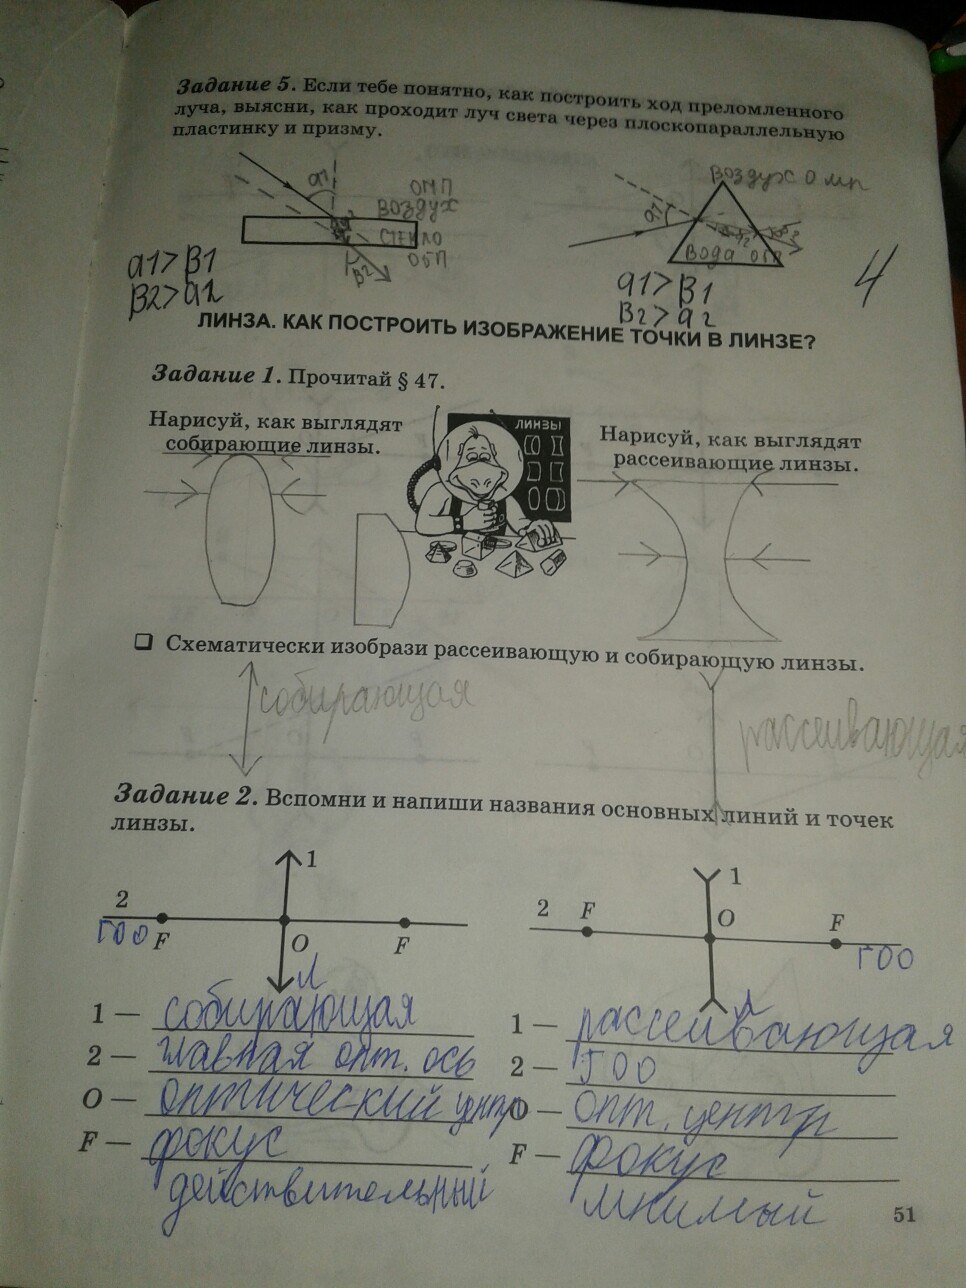 Задание 5. Если тебе понятно, как построить ход преломленного
луча, выясни, как проходит луч света через плоскопараллельную
пластинку и призму.
α1
ОМП
ВОЗДУХ
СТЕКЛО
ОБП
β2
α1 > β1
β2 > α2
ВОЗДУХ ОМП
α1
Вода ОБП
α1 > β1
β2 > α2
4
ЛИНЗА. КАК ПОСТРОИТЬ ИЗОБРАЖЕНИЕ ТОЧКИ В ЛИНЗЕ?
Задание 1. Прочитай § 47.
Нарисуй, как выглядят
собирающие линзы.
ЛИНЗЫ
Нарисуй, как выглядят
рассеивающие линзы.
Схематически изобрази рассеивающую и собирающую линзы.
собирающая
рассеивающая
Задание 2. Вспомни и напиши названия основных линий и точек
линзы.
1
2
ГОО F
O
F
1
2 F
O
F
ГОО
Л
1 — собирающая
2 — главная опт. ось
O — оптический центр
F — фокус
действительный
Л
1 — рассеивающая
2 — ГОО
O — опт. центр
F — фокус
мнимый
51